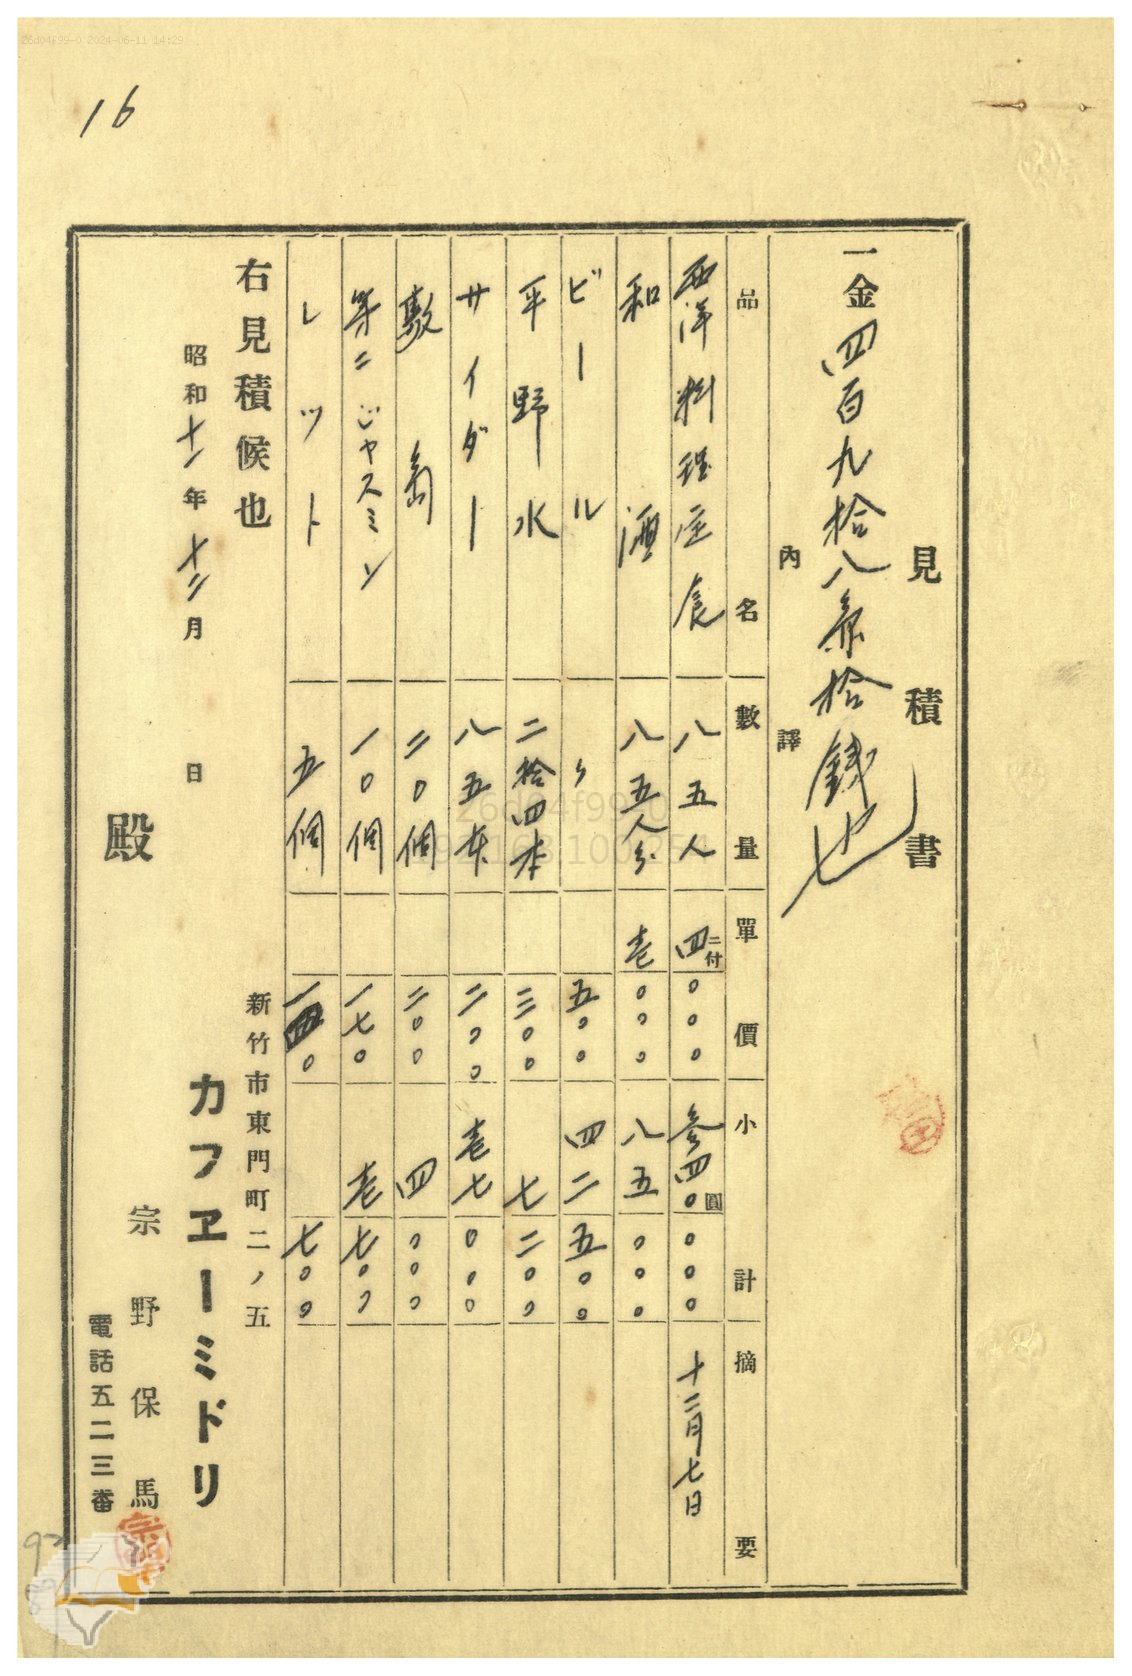 26d04f99-0 2024-06-11 14:29
16
見積書
一金四百九拾八円𠦄拾銭也
内譯
品名 數量 單價 小計 摘要
西洋料理定食 八五人 四、〇〇〇 二付 参四〇圓〇〇〇 十二月七日
和酒 八五人分 壱〇〇〇 八五〇〇〇
ビール 〃 五〇〇 四二五〇〇
平野水 二拾四本 三〇〇 七二〇〇
サイダー 八五本 二〇〇 壱七〇〇〇
敷島 二〇個 二〇〇 四〇〇〇
第二ジャスミン 一〇個 一七〇 壱七〇〇
レツト 五個 一四〇 七〇〇
右見積候也
昭和十一年十二月 日
新竹市東門町二ノ五
カフヱーミドリ
宗野保馬
電話五二三番
殿
26d04f99-0
192.168.100.254